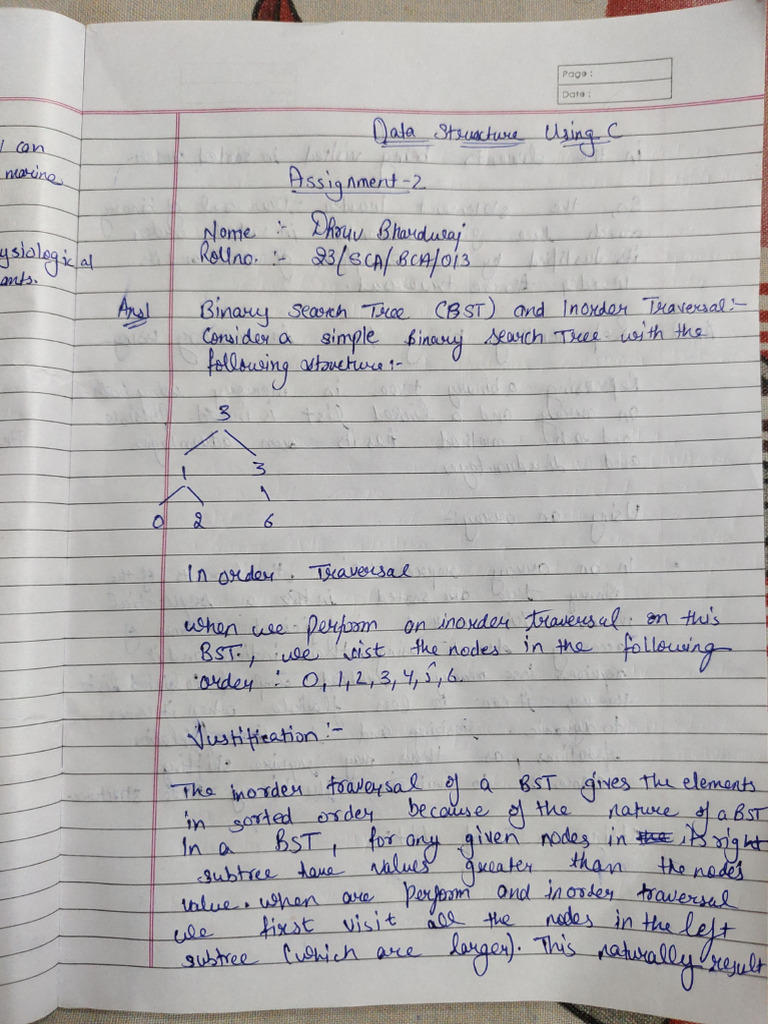 Page :
Date :
l can
marine
ysiological
ants.
Data Structure Using C
Assignment-2
Name :- Dhruv Bhardwaj
Rollno. :- 23/SCA/BCA/013
Ans1 Binary Search Tree (BST) and Inorder Traversal:-
Consider a simple Binary Search Tree with the
following structure:-
3
1 3
0 2 6
In order . Traversal
when we perform an inorder traversal on this
BST., we visit the nodes in the following
order : 0, 1, 2, 3, 4, 5, 6.
Justification :-
The inorder traversal of a BST gives the elements
in sorted order because of the nature of a BST
In a BST, for any given nodes in the its right
subtree have values greater than the node's
value. when are perform and inorder traversal
we first visit all the nodes in the left
subtree (which are larger). This naturally result